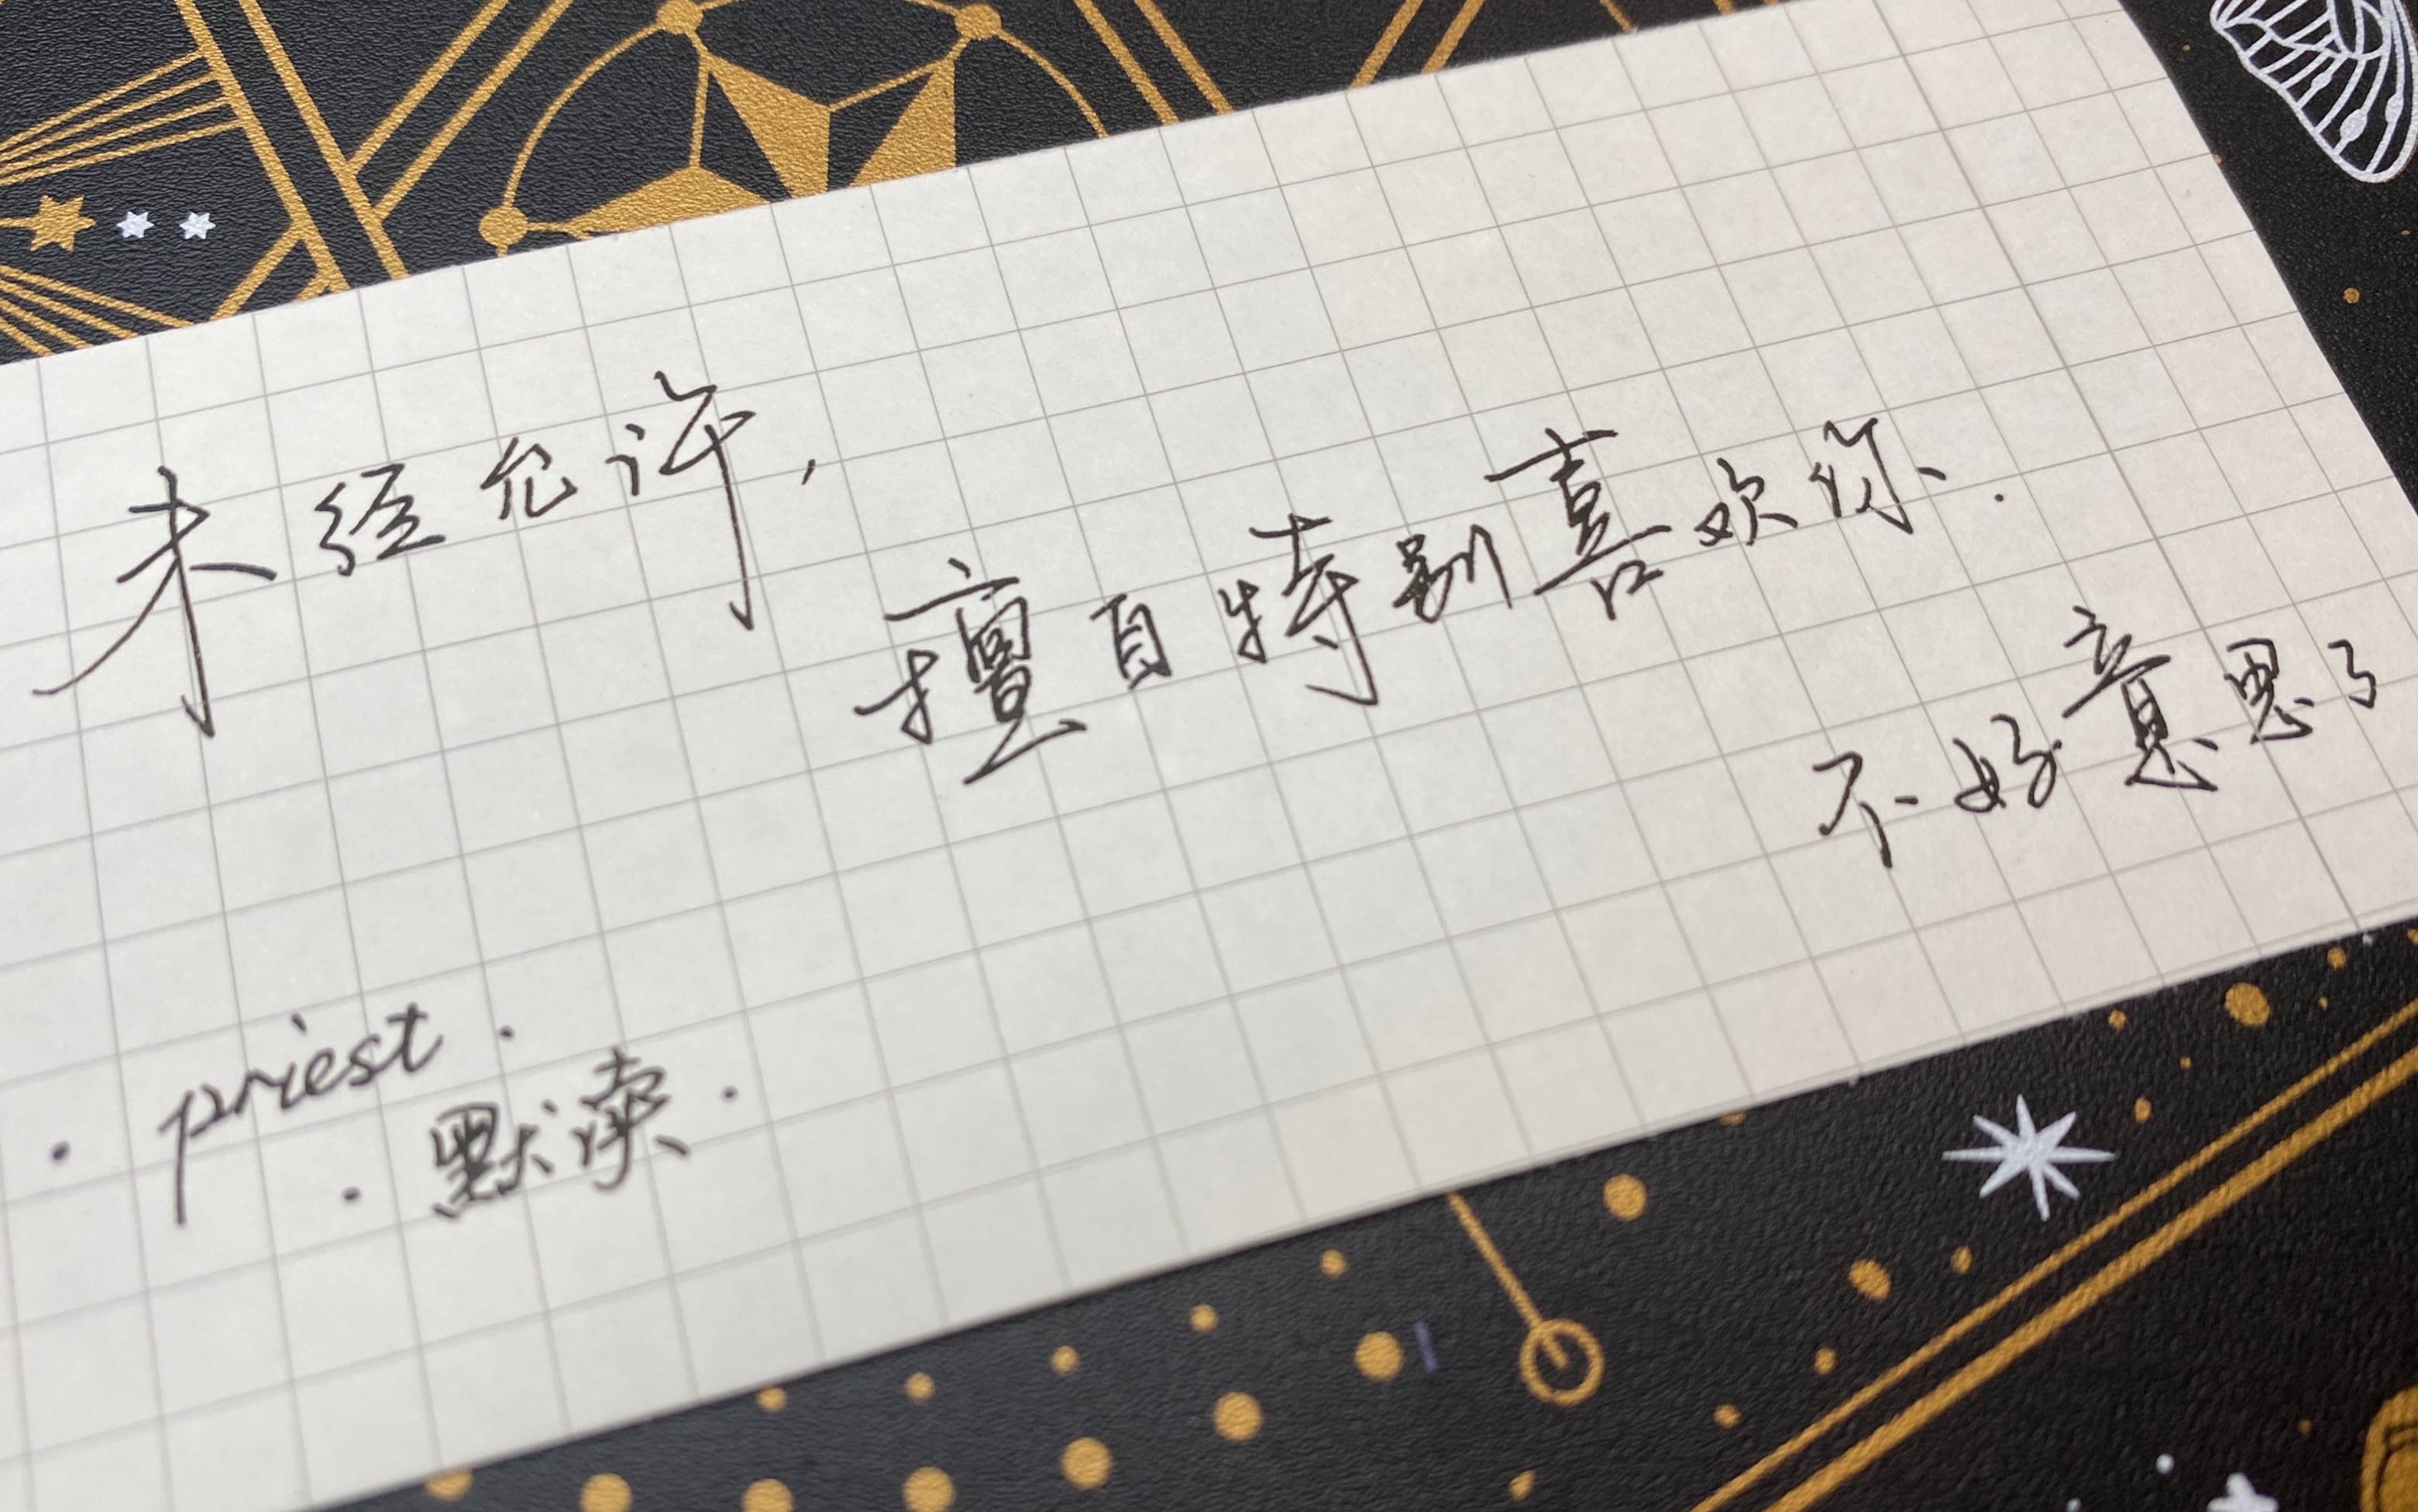 未经允许,
擅自特别喜欢你.
不好意思了
· priest ·
· 默读 ·